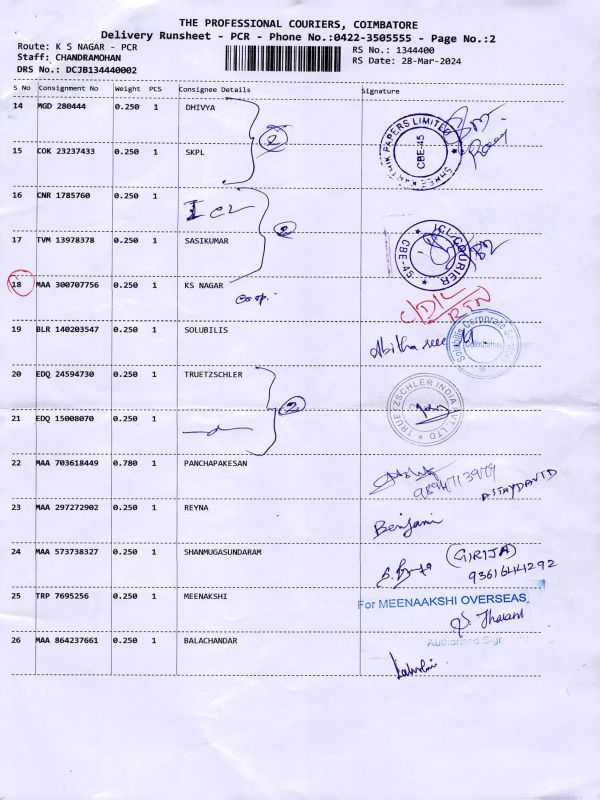 THE PROFESSIONAL COURIERS, COIMBATORE
Delivery Runsheet - PCR - Phone No.:0422-3505555 - Page No.:2
Route: K S NAGAR - PCR RS No.: 1344400
Staff: CHANDRAMOHAN RS Date: 28-Mar-2024
DRS No.: DCJB134440002
S No Consignment No Weight PCS Consignee Details Signature
14 MGD 280444 0.250 1 DHIVYA
2
SHREE KARTHIK PAPERS LIMITED CBE-45
15 COK 23237433 0.250 1 SKPL
16 CNR 1785760 0.250 1 ICL
2
ICL-COURIER CBE-45
17 TVM 13978378 0.250 1 SASIKUMAR
18 MAA 300707756 0.250 1 KS NAGAR
Co op. CDIL RTN
19 BLR 140203547 0.250 1 SOLUBILIS
20 EDQ 24594730 0.250 1 TRUETZSCHLER
2
TRUETZSCHLER INDIA PVT. LTD
21 EDQ 15008070 0.250 1
22 MAA 703618449 0.780 1 PANCHAPAKESAN
23 MAA 297272902 0.250 1 REYNA
Benjami
24 MAA 573738327 0.250 1 SHANMUGASUNDARAM (GIRIJA)
9361644292
25 TRP 7695256 0.250 1 MEENAKSHI For MEENAAKSHI OVERSEAS,
26 MAA 864237661 0.250 1 BALACHANDAR